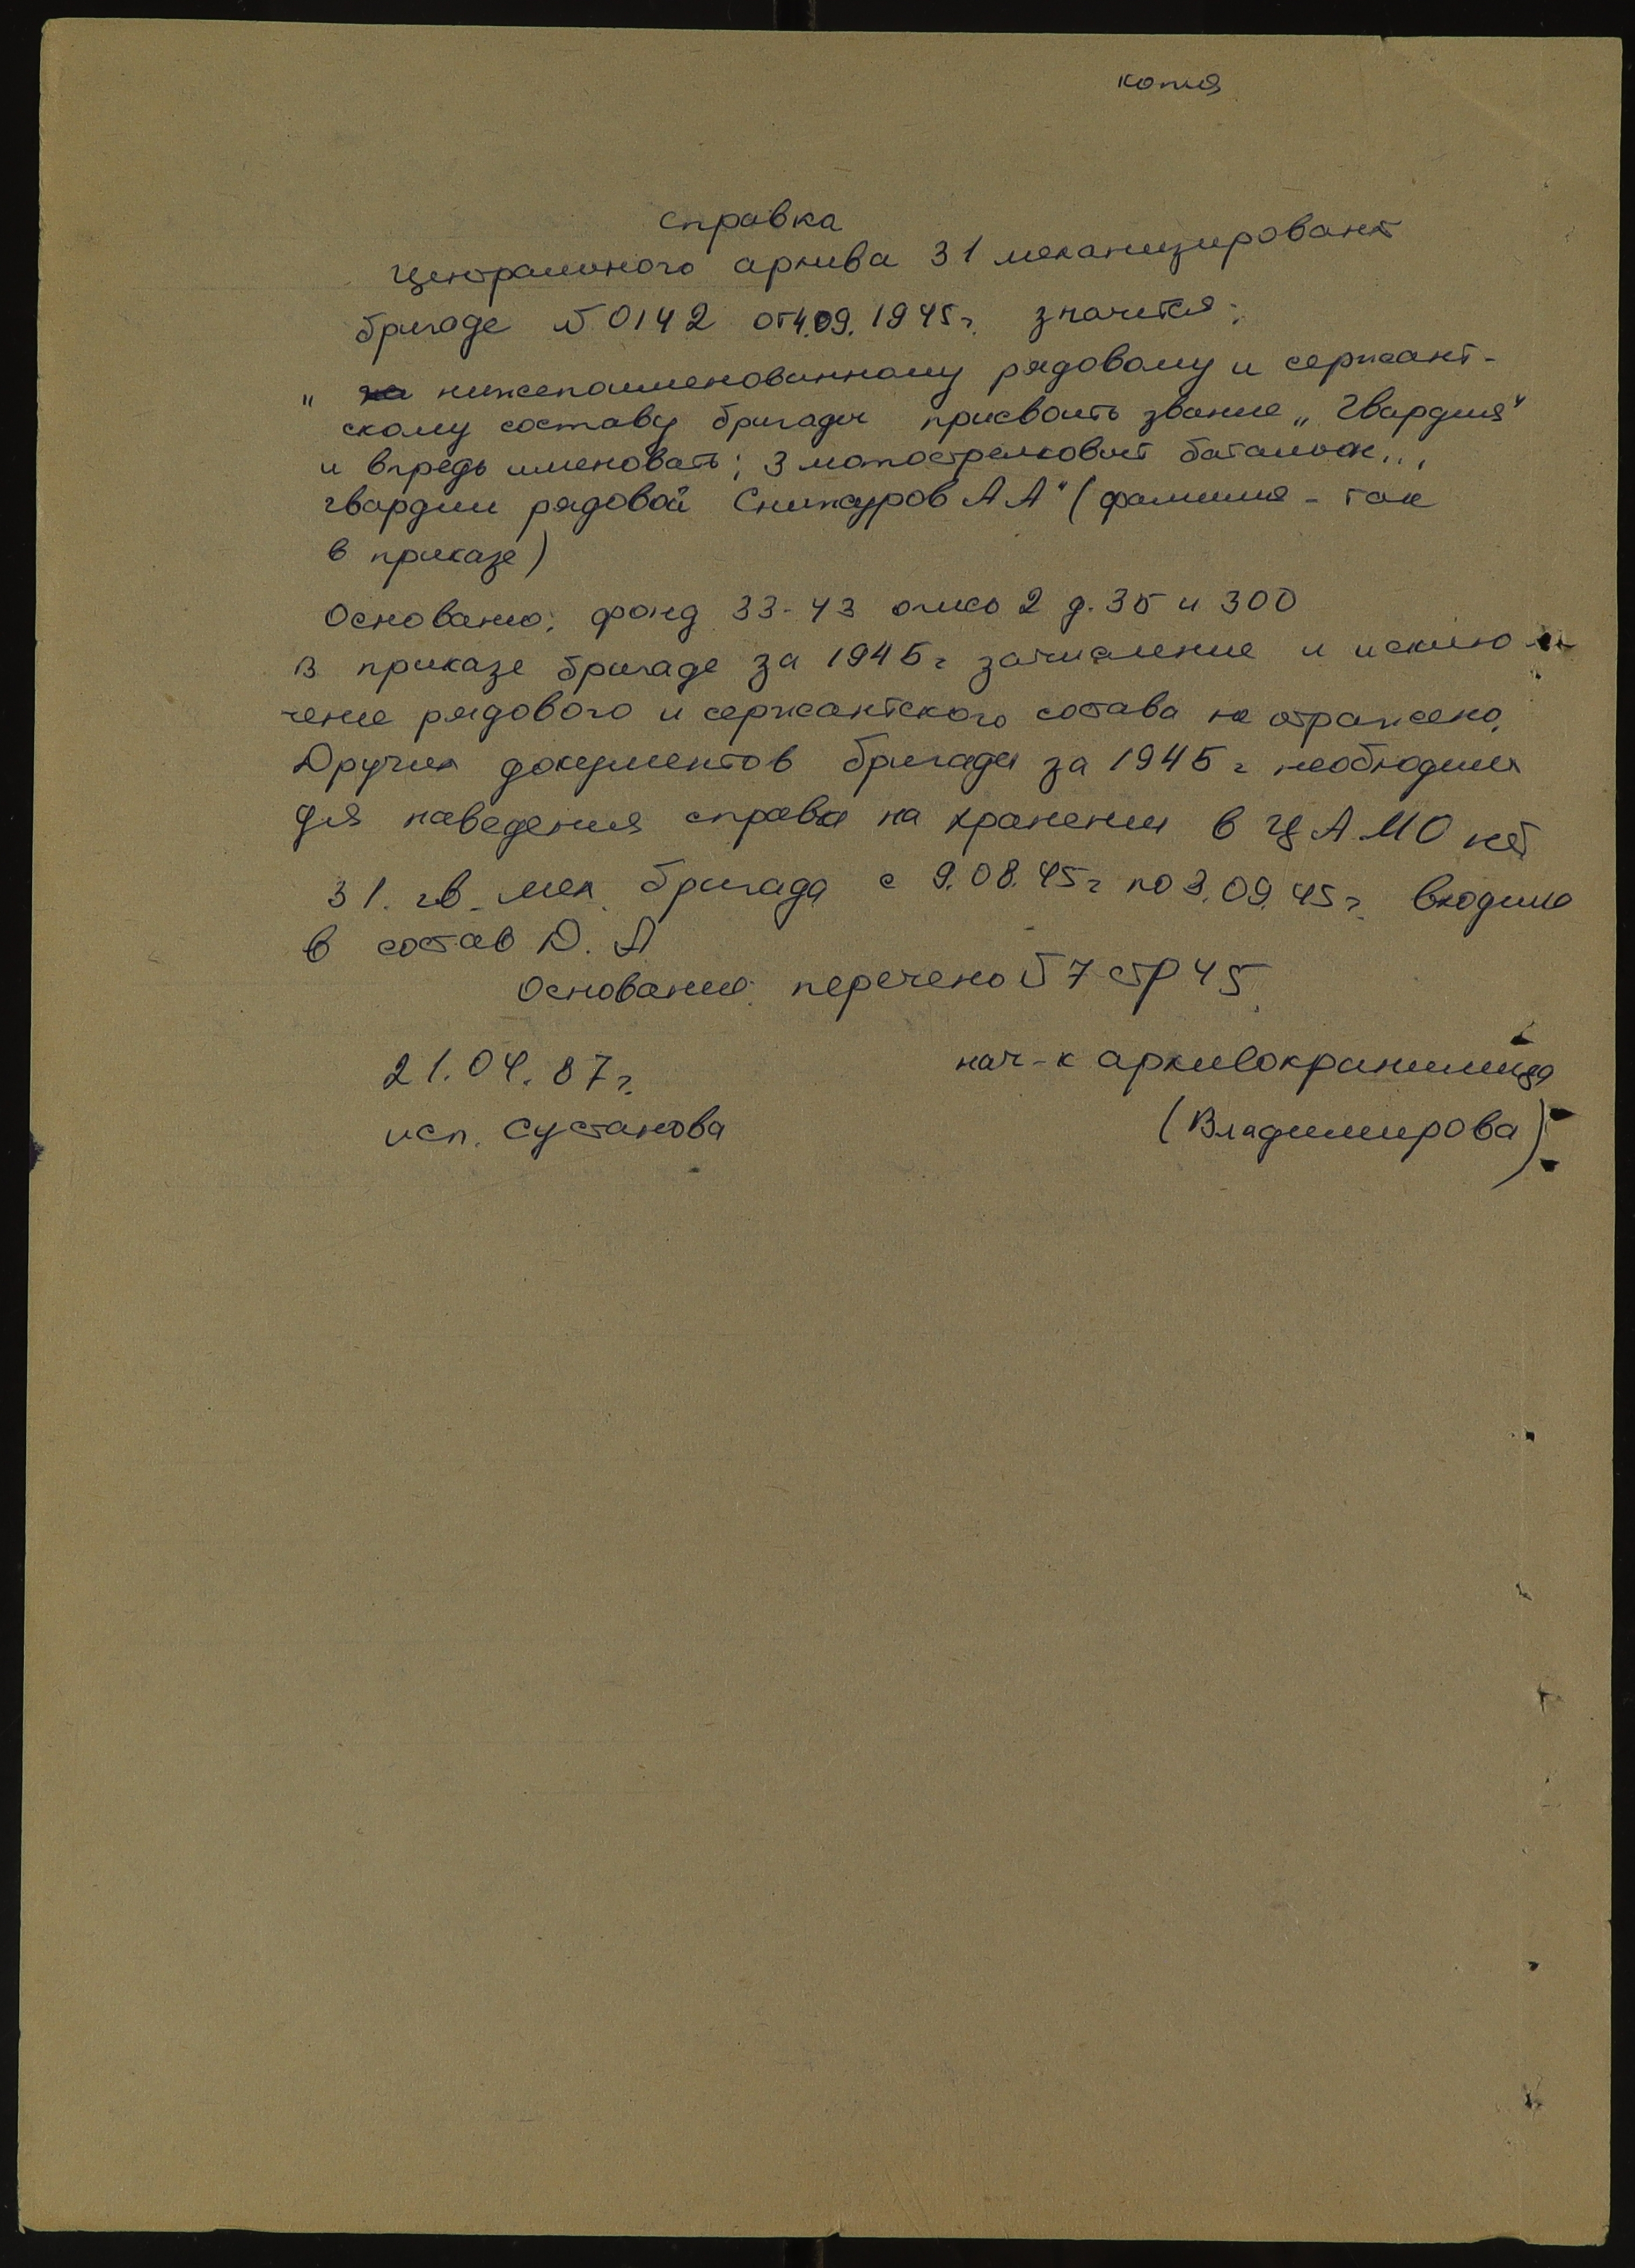 копия
справка
Центрального архива 31 механизирован
бригаде № 0142 от 4.09.1945г. значится:
" нижепоименованному рядовому и сержант-
скому составу бригады присвоить звание „Гвардия"
и впредь именовать; 3 мотострелковый батальон...
гвардии рядовой Снижуров А А" (фамилия - так
в приказе)
Основание: фонд 33-43 опись 2 д. 35 и 300
В приказе бригаде за 1945г зачисление и исклю-
чение рядового и сержантского состава не отражено.
Других документов бригады за 1945г необходимых
для наведения справки на хранении в ЦАМО нет
31. гв. мех. бригада с 9.08.45г по 3.09.45г. входила
в состав Д. А
Основание: перечень №7 стр 45.
21.04.87г. нач-к архивохранилища
исп. Сустанова (Владимирова)